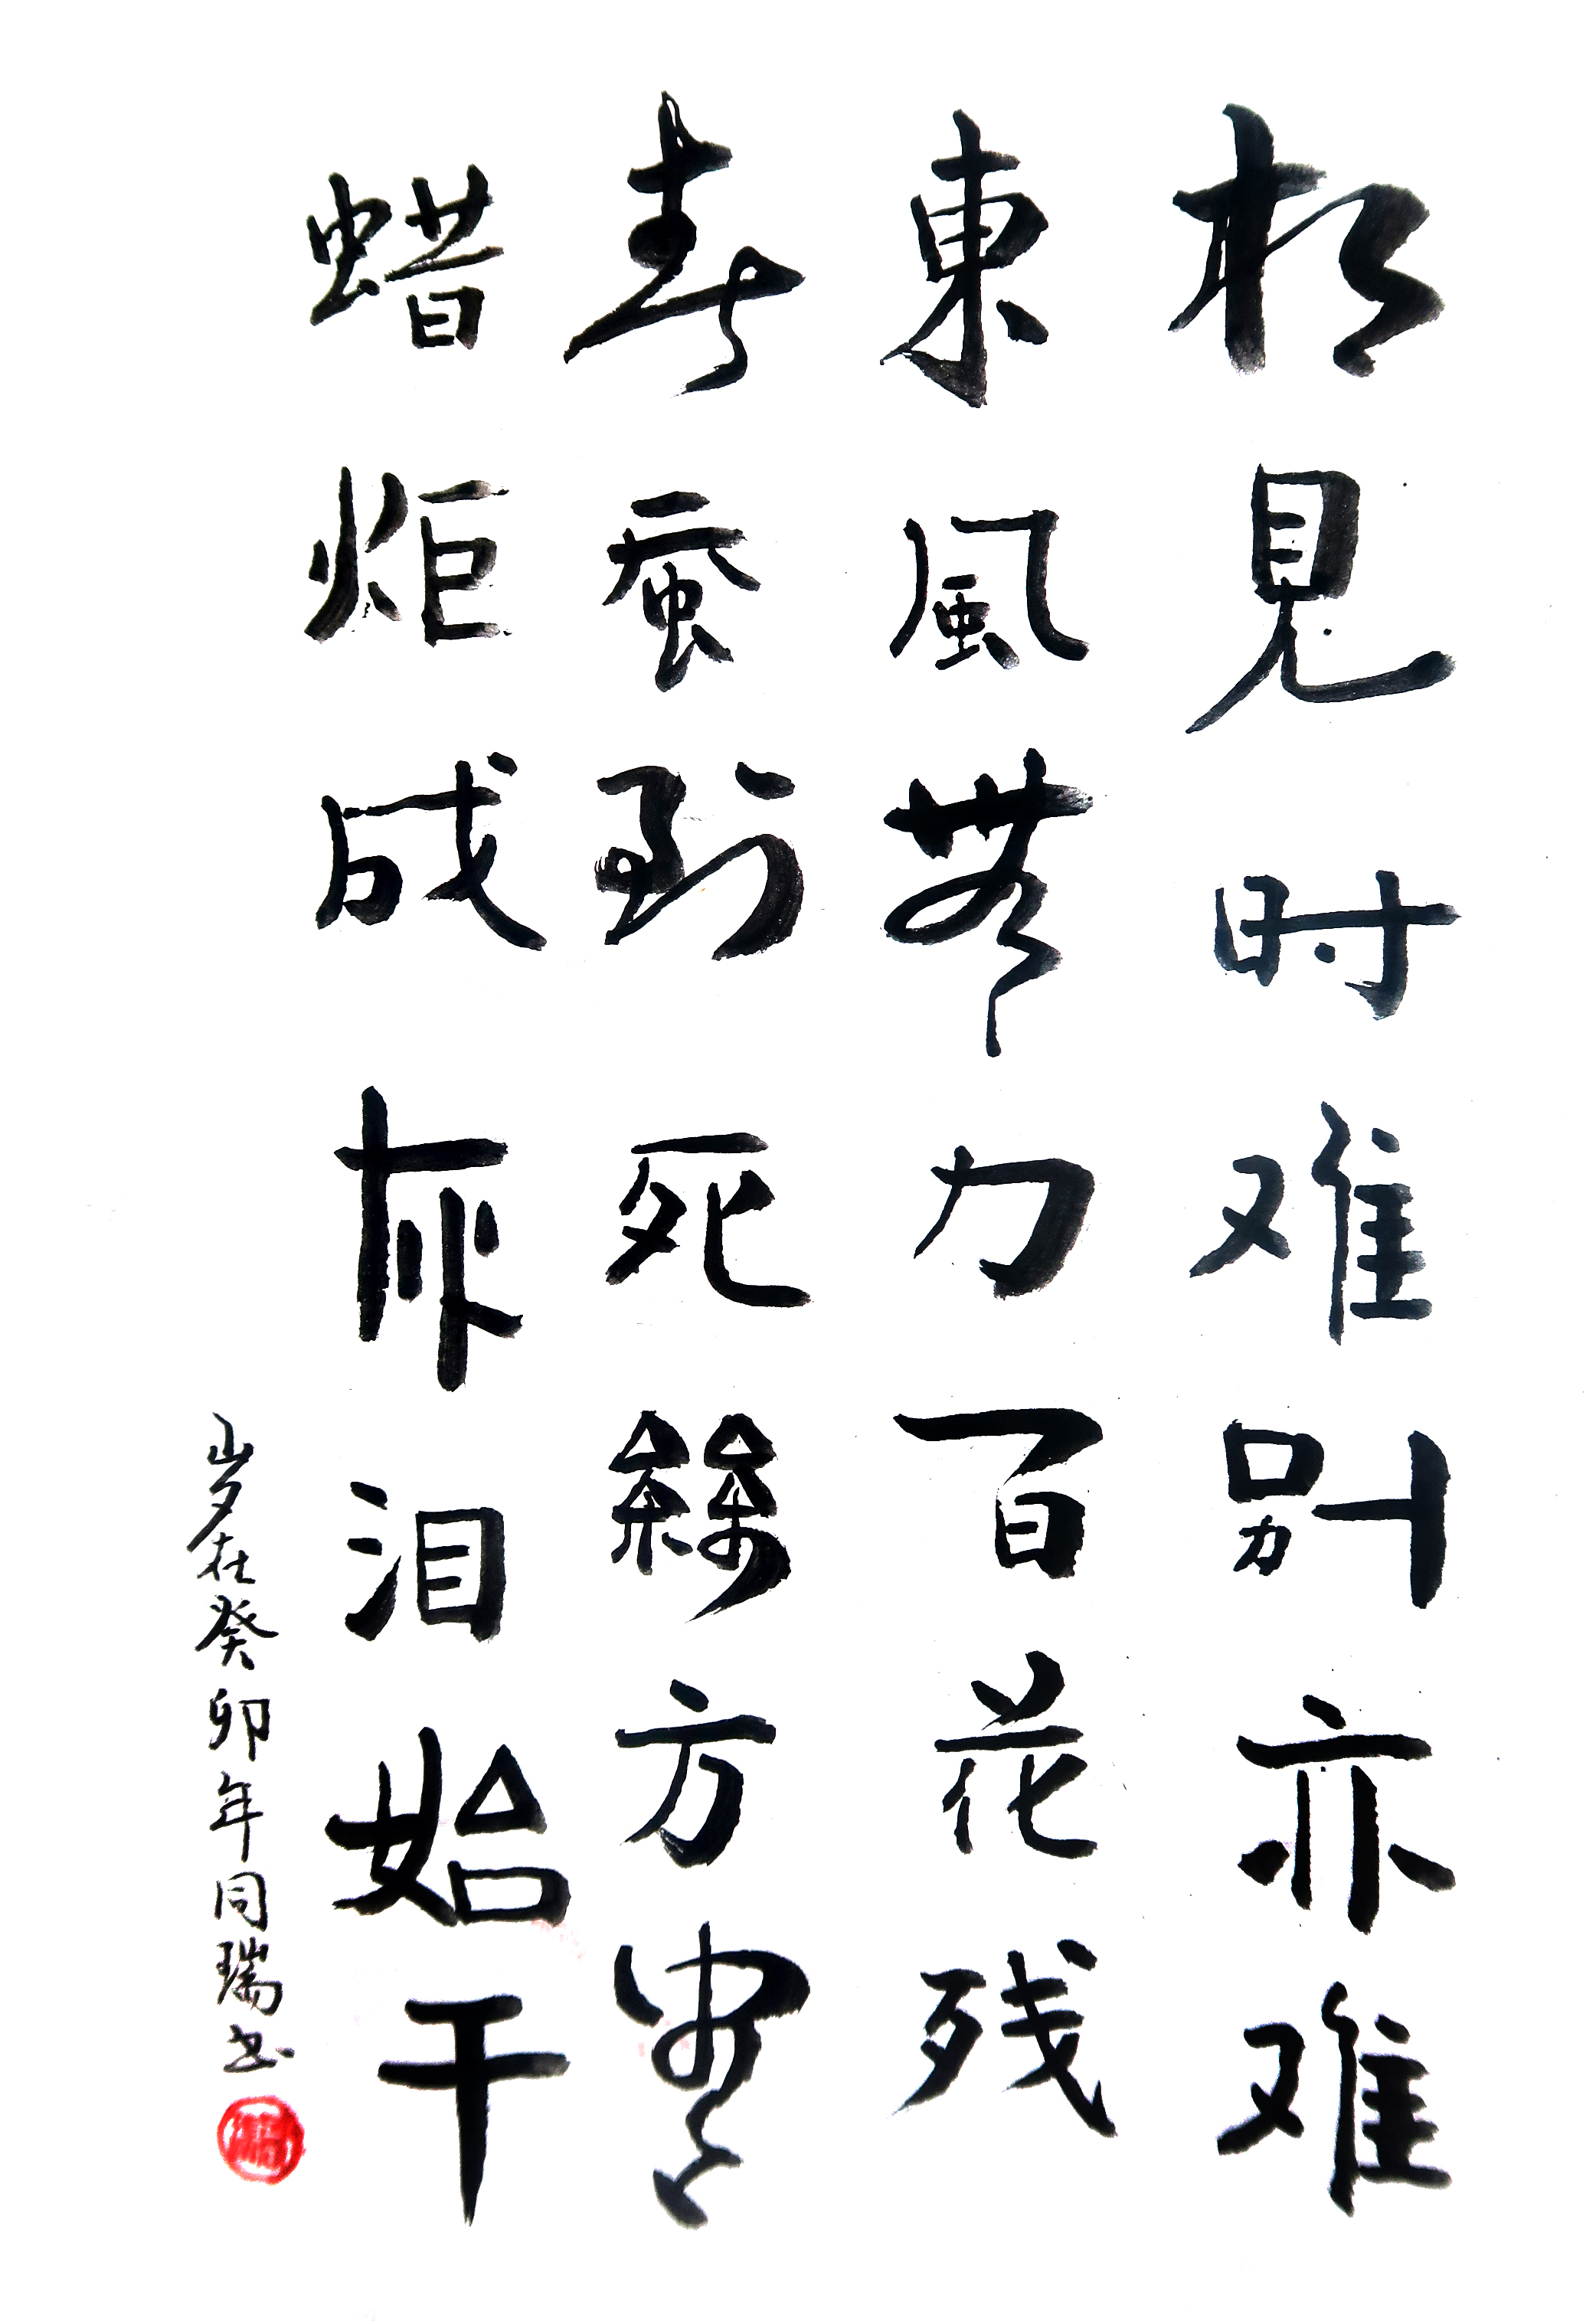 相見时难别亦难
東風無力百花残
春蚕到死絲方尽
蜡炬成灰泪始干
岁在癸卯年同瑞书